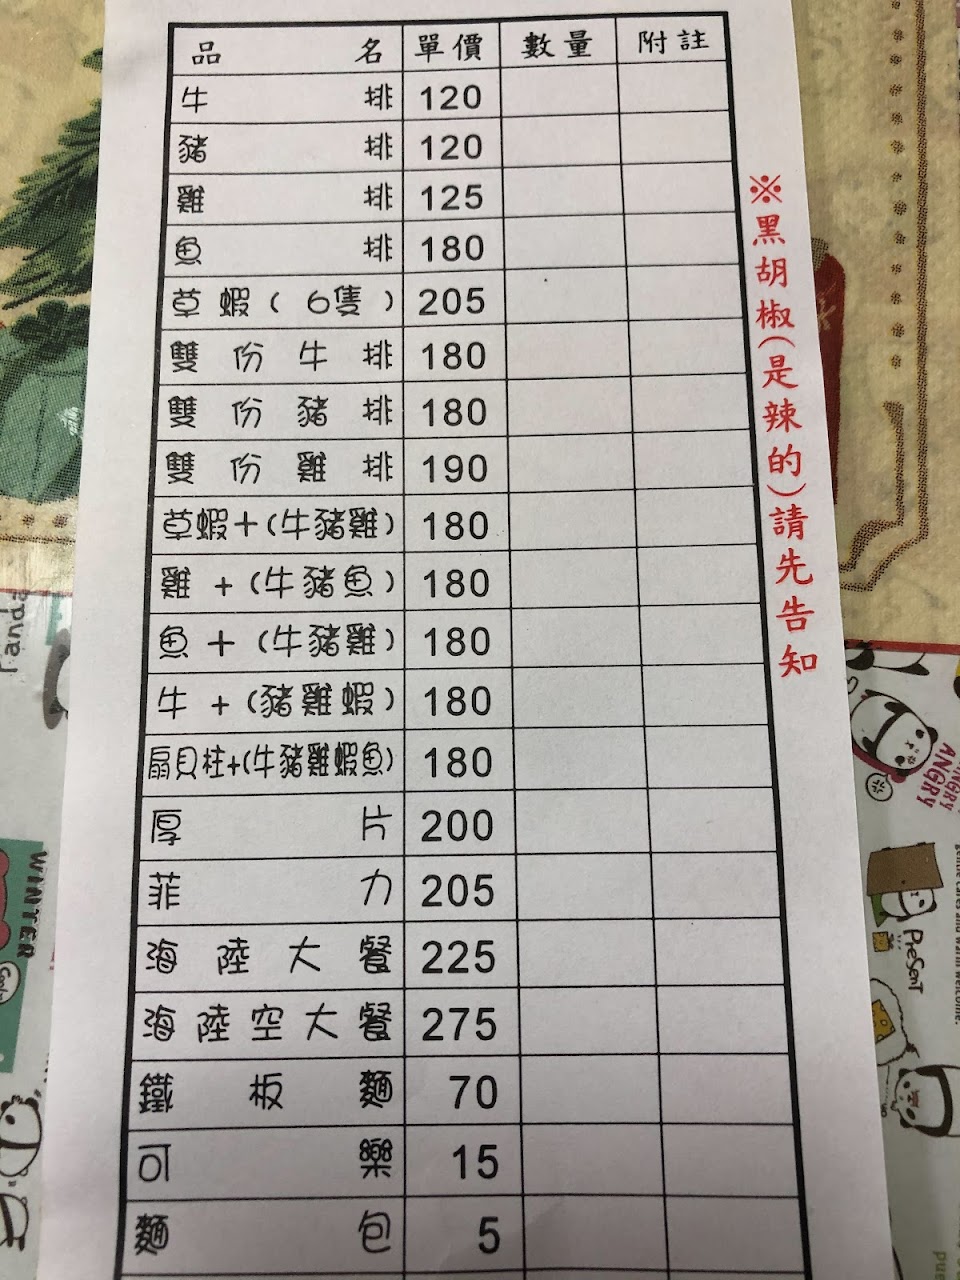 品名 單價 數量 附註
牛排 120
豬排 120
雞排 125
魚排 180
草蝦(6隻) 205
雙份牛排 180
雙份豬排 180
雙份雞排 190
草蝦+(牛豬雞) 180
雞+(牛豬魚) 180
魚+(牛豬雞) 180
牛+(豬雞蝦) 180
扇貝柱+(牛豬雞蝦魚) 180
厚片 200
菲力 205
海陸大餐 225
海陸空大餐 275
鐵板麵 70
可樂 15
麵包 5
※黑胡椒(是辣的)請先告知
Panda
WINTER
ANGRY
ANGRY
PreSenT